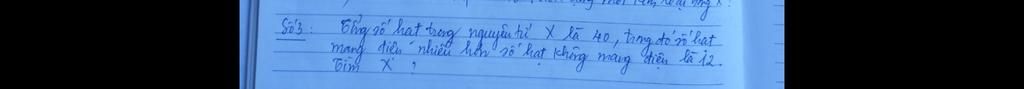 Số 3: Tổng số hạt trong nguyên tử X là 40, trong đó số hạt
mang điện nhiều hơn số hạt không mang điện là 12.
Tìm X ?